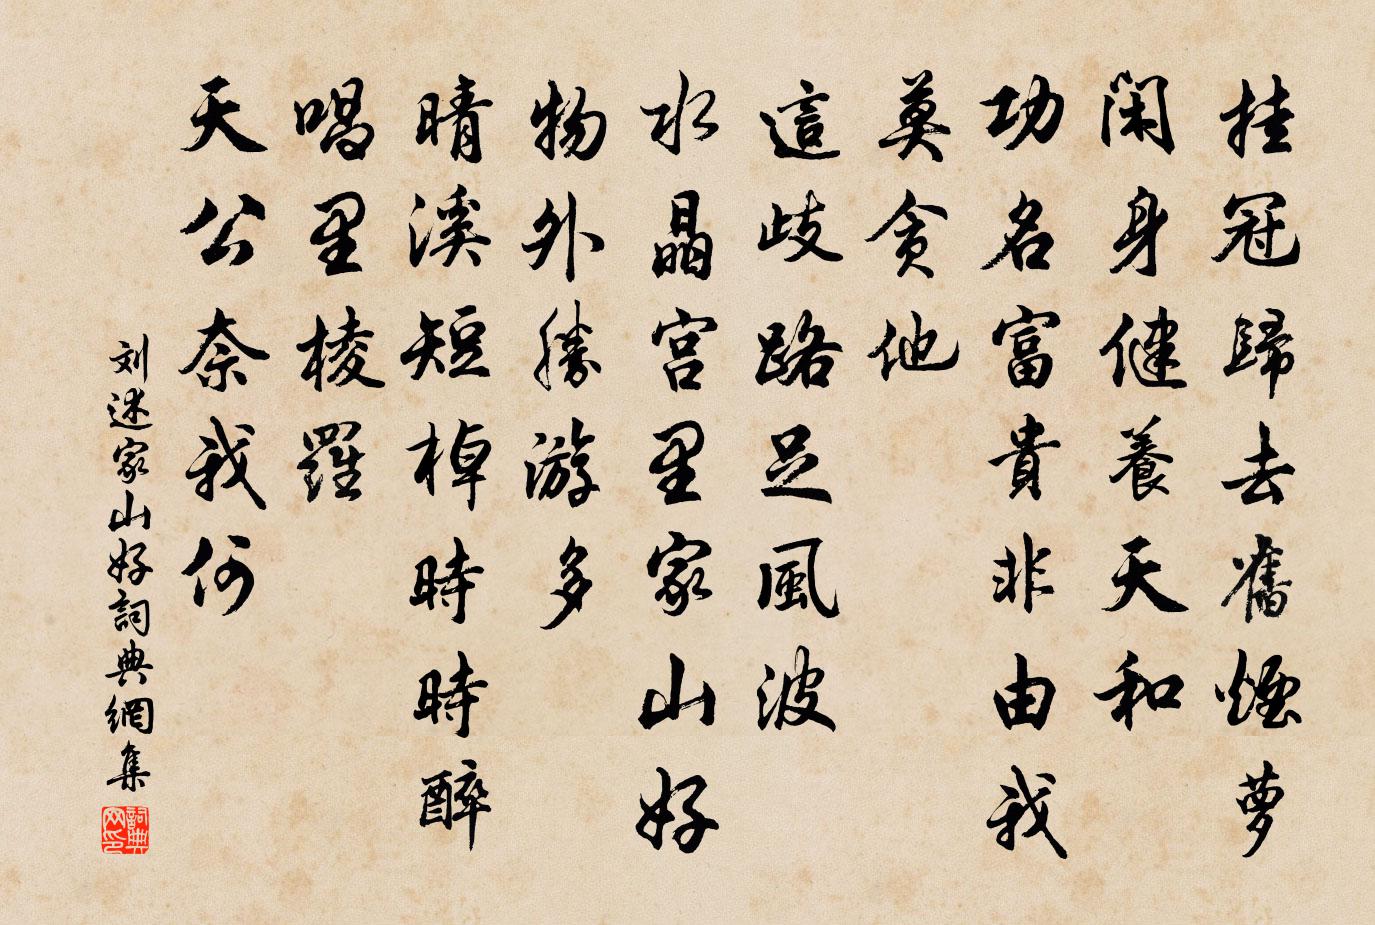 挂冠歸去舊煙蘿
閑身健養天和
功名富貴非由我
莫貪他
這歧路足風波
水晶宫里家山好
物外勝游多
晴溪短棹時時醉
唱里棱羅
天公奈我何
刘述家山好詞典網集
詞典网印